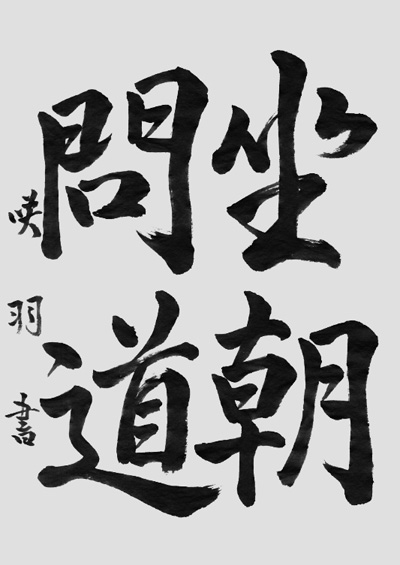 坐朝
問道
咲羽書